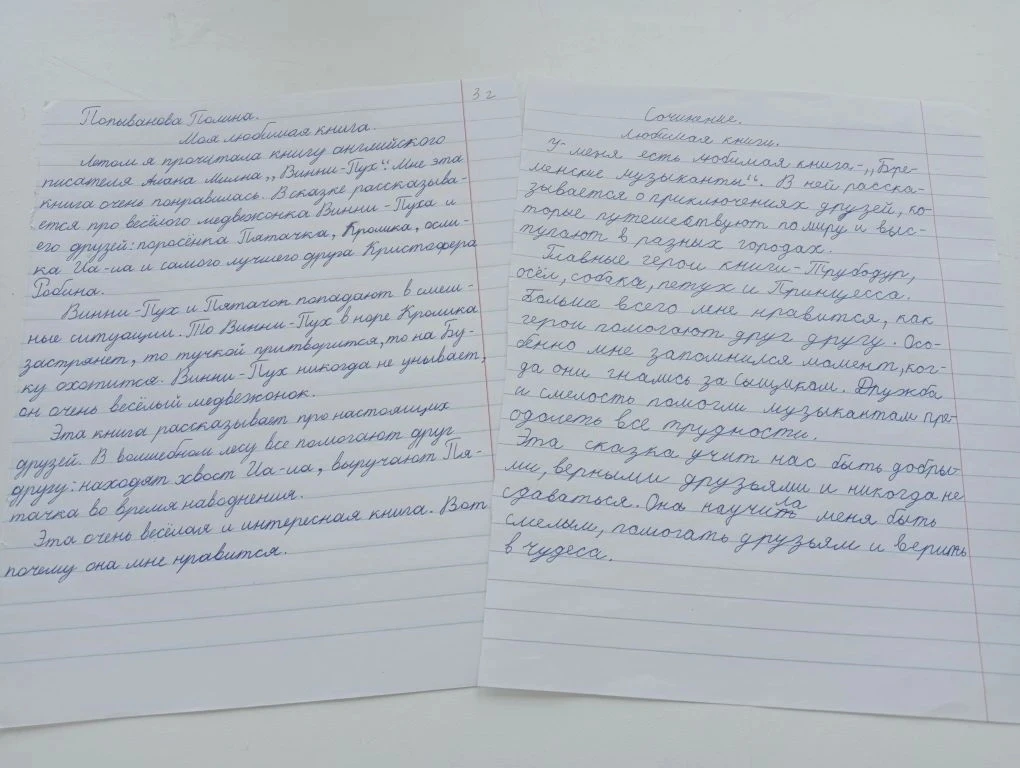 3 г
Попыванова Полина.
Моя любимая книга.
Летом я прочитала книгу английского
писателя Алана Милна „Винни-Пух". Мне эта
книга очень понравилась. В сказке рассказыва-
ется про весёлого медвежонка Винни-Пуха и
его друзей: поросёнка Пятачка, Кролика, осли-
ка Иа-иа и самого лучшего друга Кристофера
Робина.
Винни-Пух и Пятачок попадают в смеш-
ные ситуации. То Винни-Пух в норе Кролика
застрянет, то тучкой притворится, то на Бу-
ку охотится. Винни-Пух никогда не унывает,
он очень весёлый медвежонок.
Эта книга рассказывает про настоящих
друзей. В волшебном лесу все помогают друг
другу: находят хвост Иа-иа, выручают Пя-
тачка во время наводнения.
Это очень весёлая и интересная книга. Вот
почему она мне нравится.
Сочинение.
Любимая книги.
У меня есть любимая книга-„Бре-
менские музыканты". В ней расска-
зывается о приключениях друзей, ко-
торые путешествуют по миру и выс-
тупают в разных городах.
Главные герои книги-Трубодур,
осёл, собака, петух и Принцесса.
Больше всего мне нравится, как
герои помогают друг другу. Осо-
бенно мне запомнился момент, ког-
да они гнались за сыщиком. Дружба
и смелость помогли музыкантам пре-
одолеть все трудности.
Эта сказка учит нас быть добры-
ми, верными друзьями и никогда не
сдаваться. Она научила меня быть
смелым, помогать друзьям и верить
в чудеса.